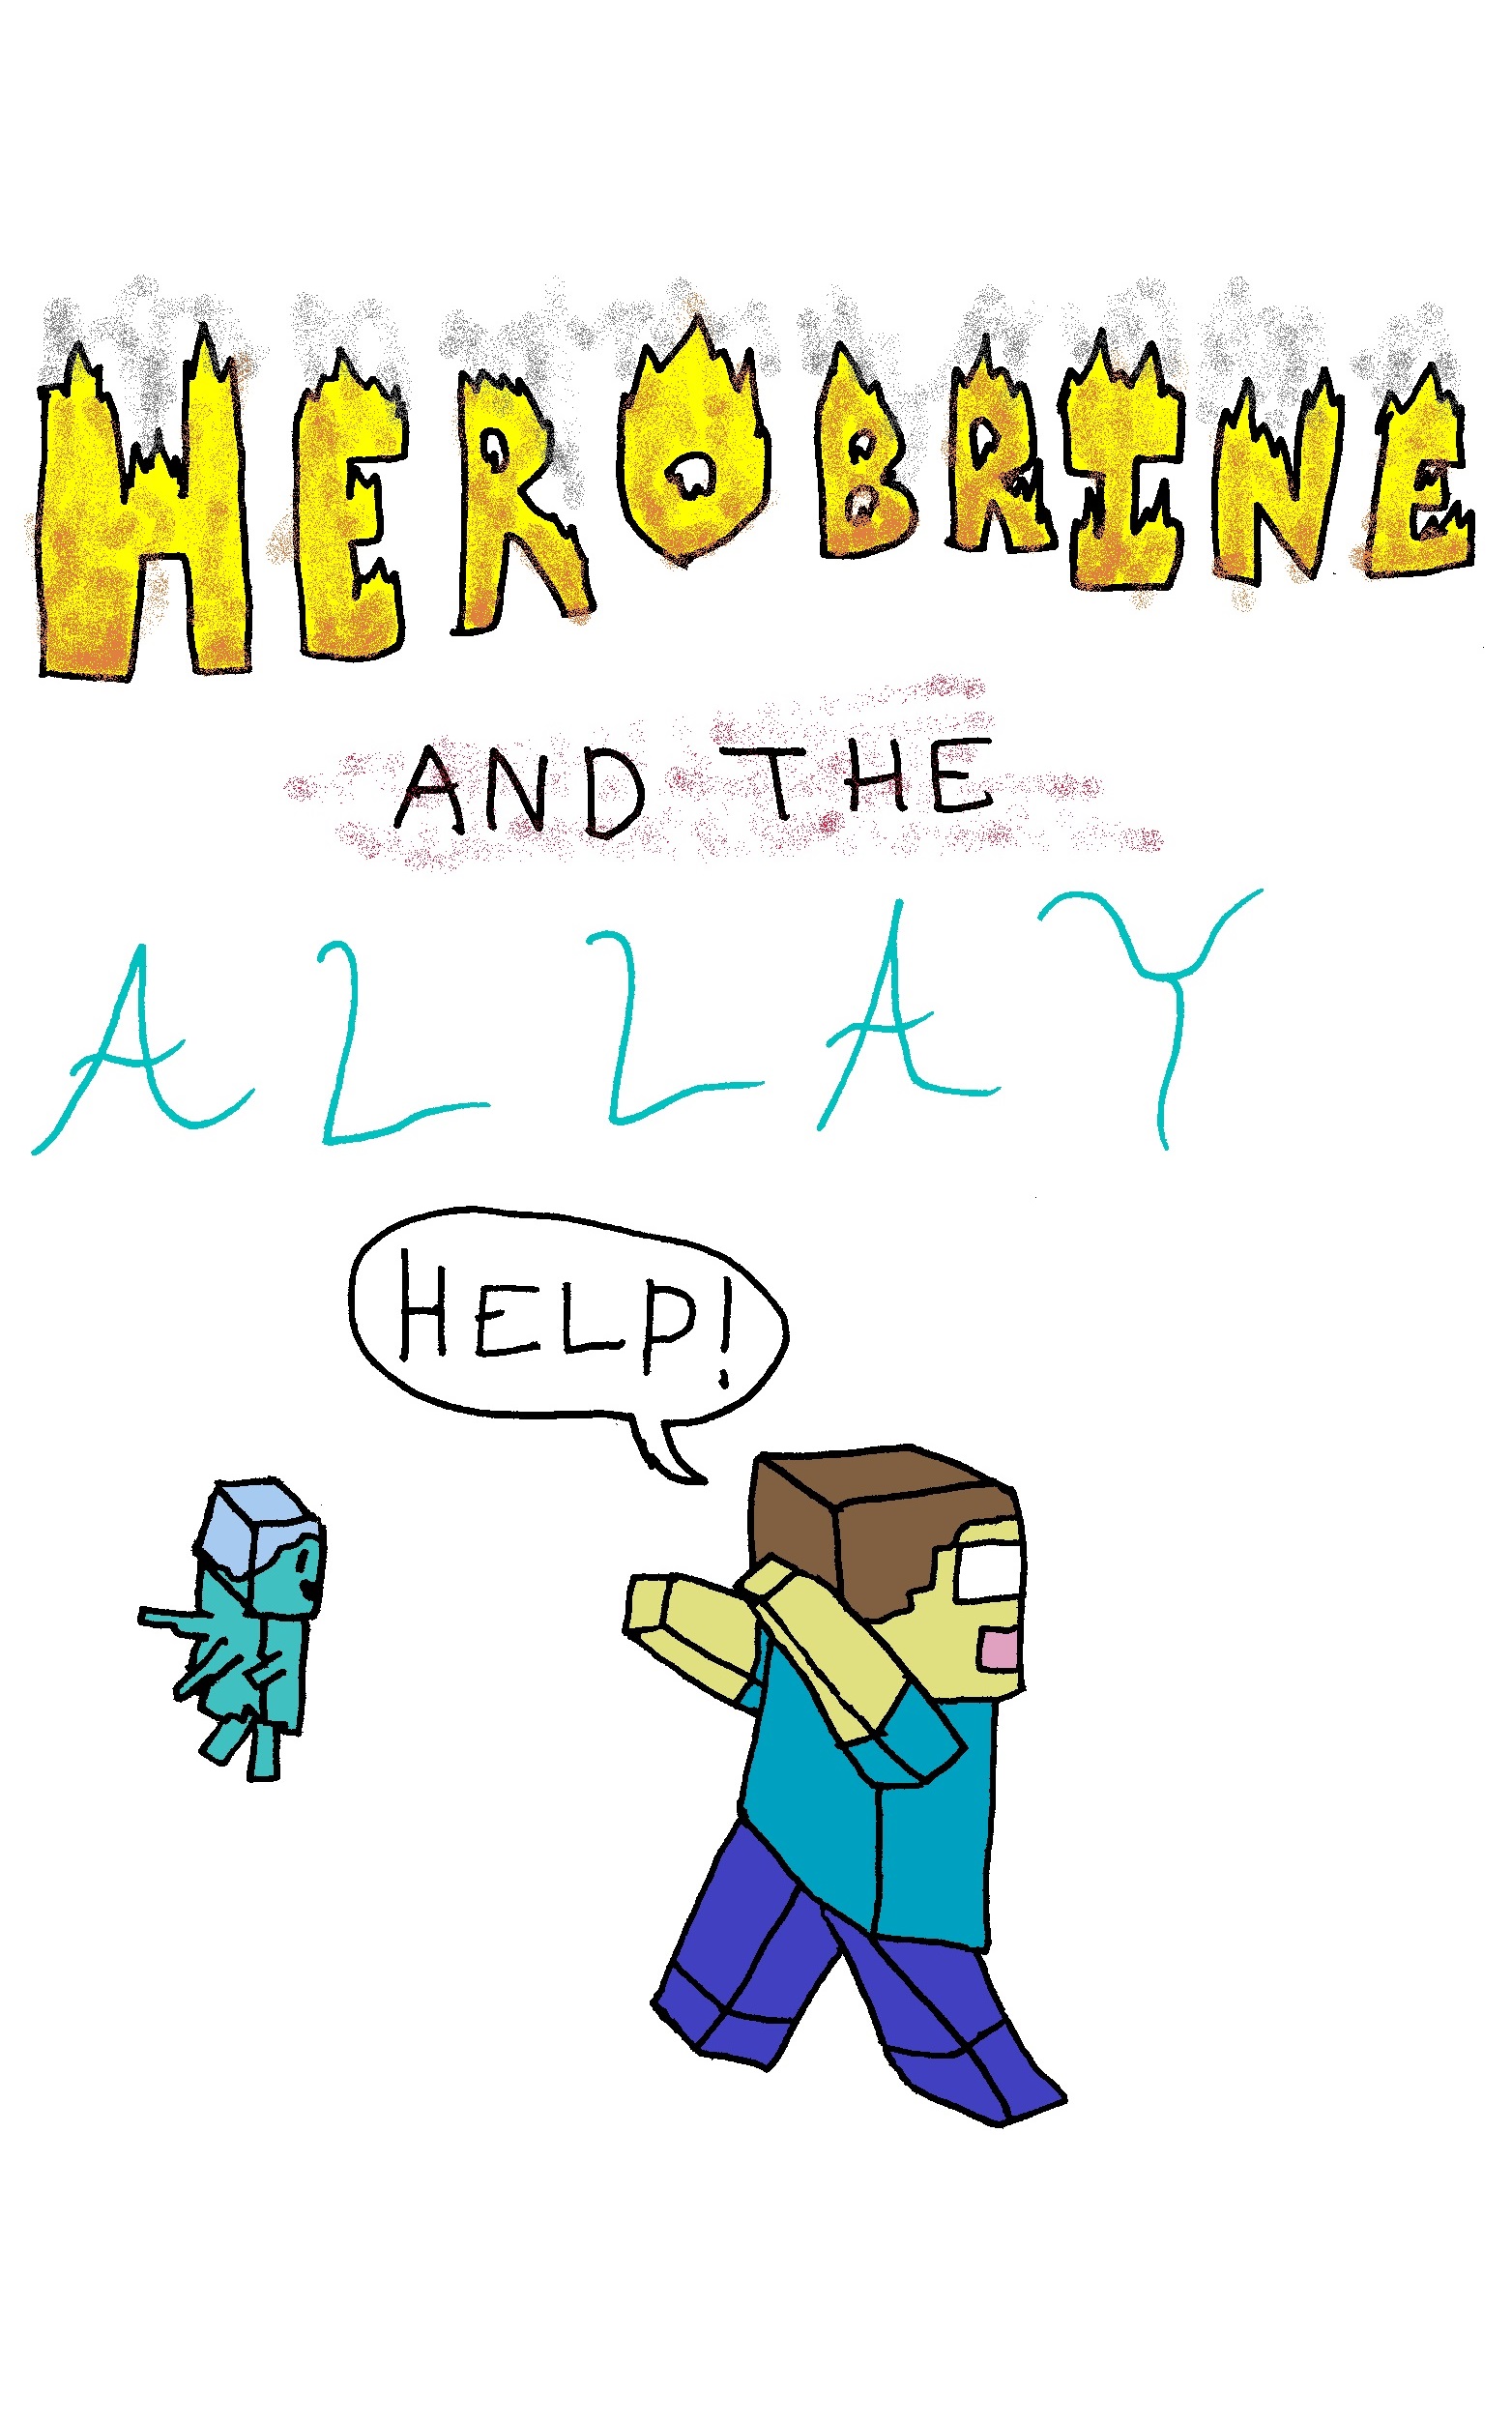 HEROBRINE
AND THE
ALLAY
HELP!